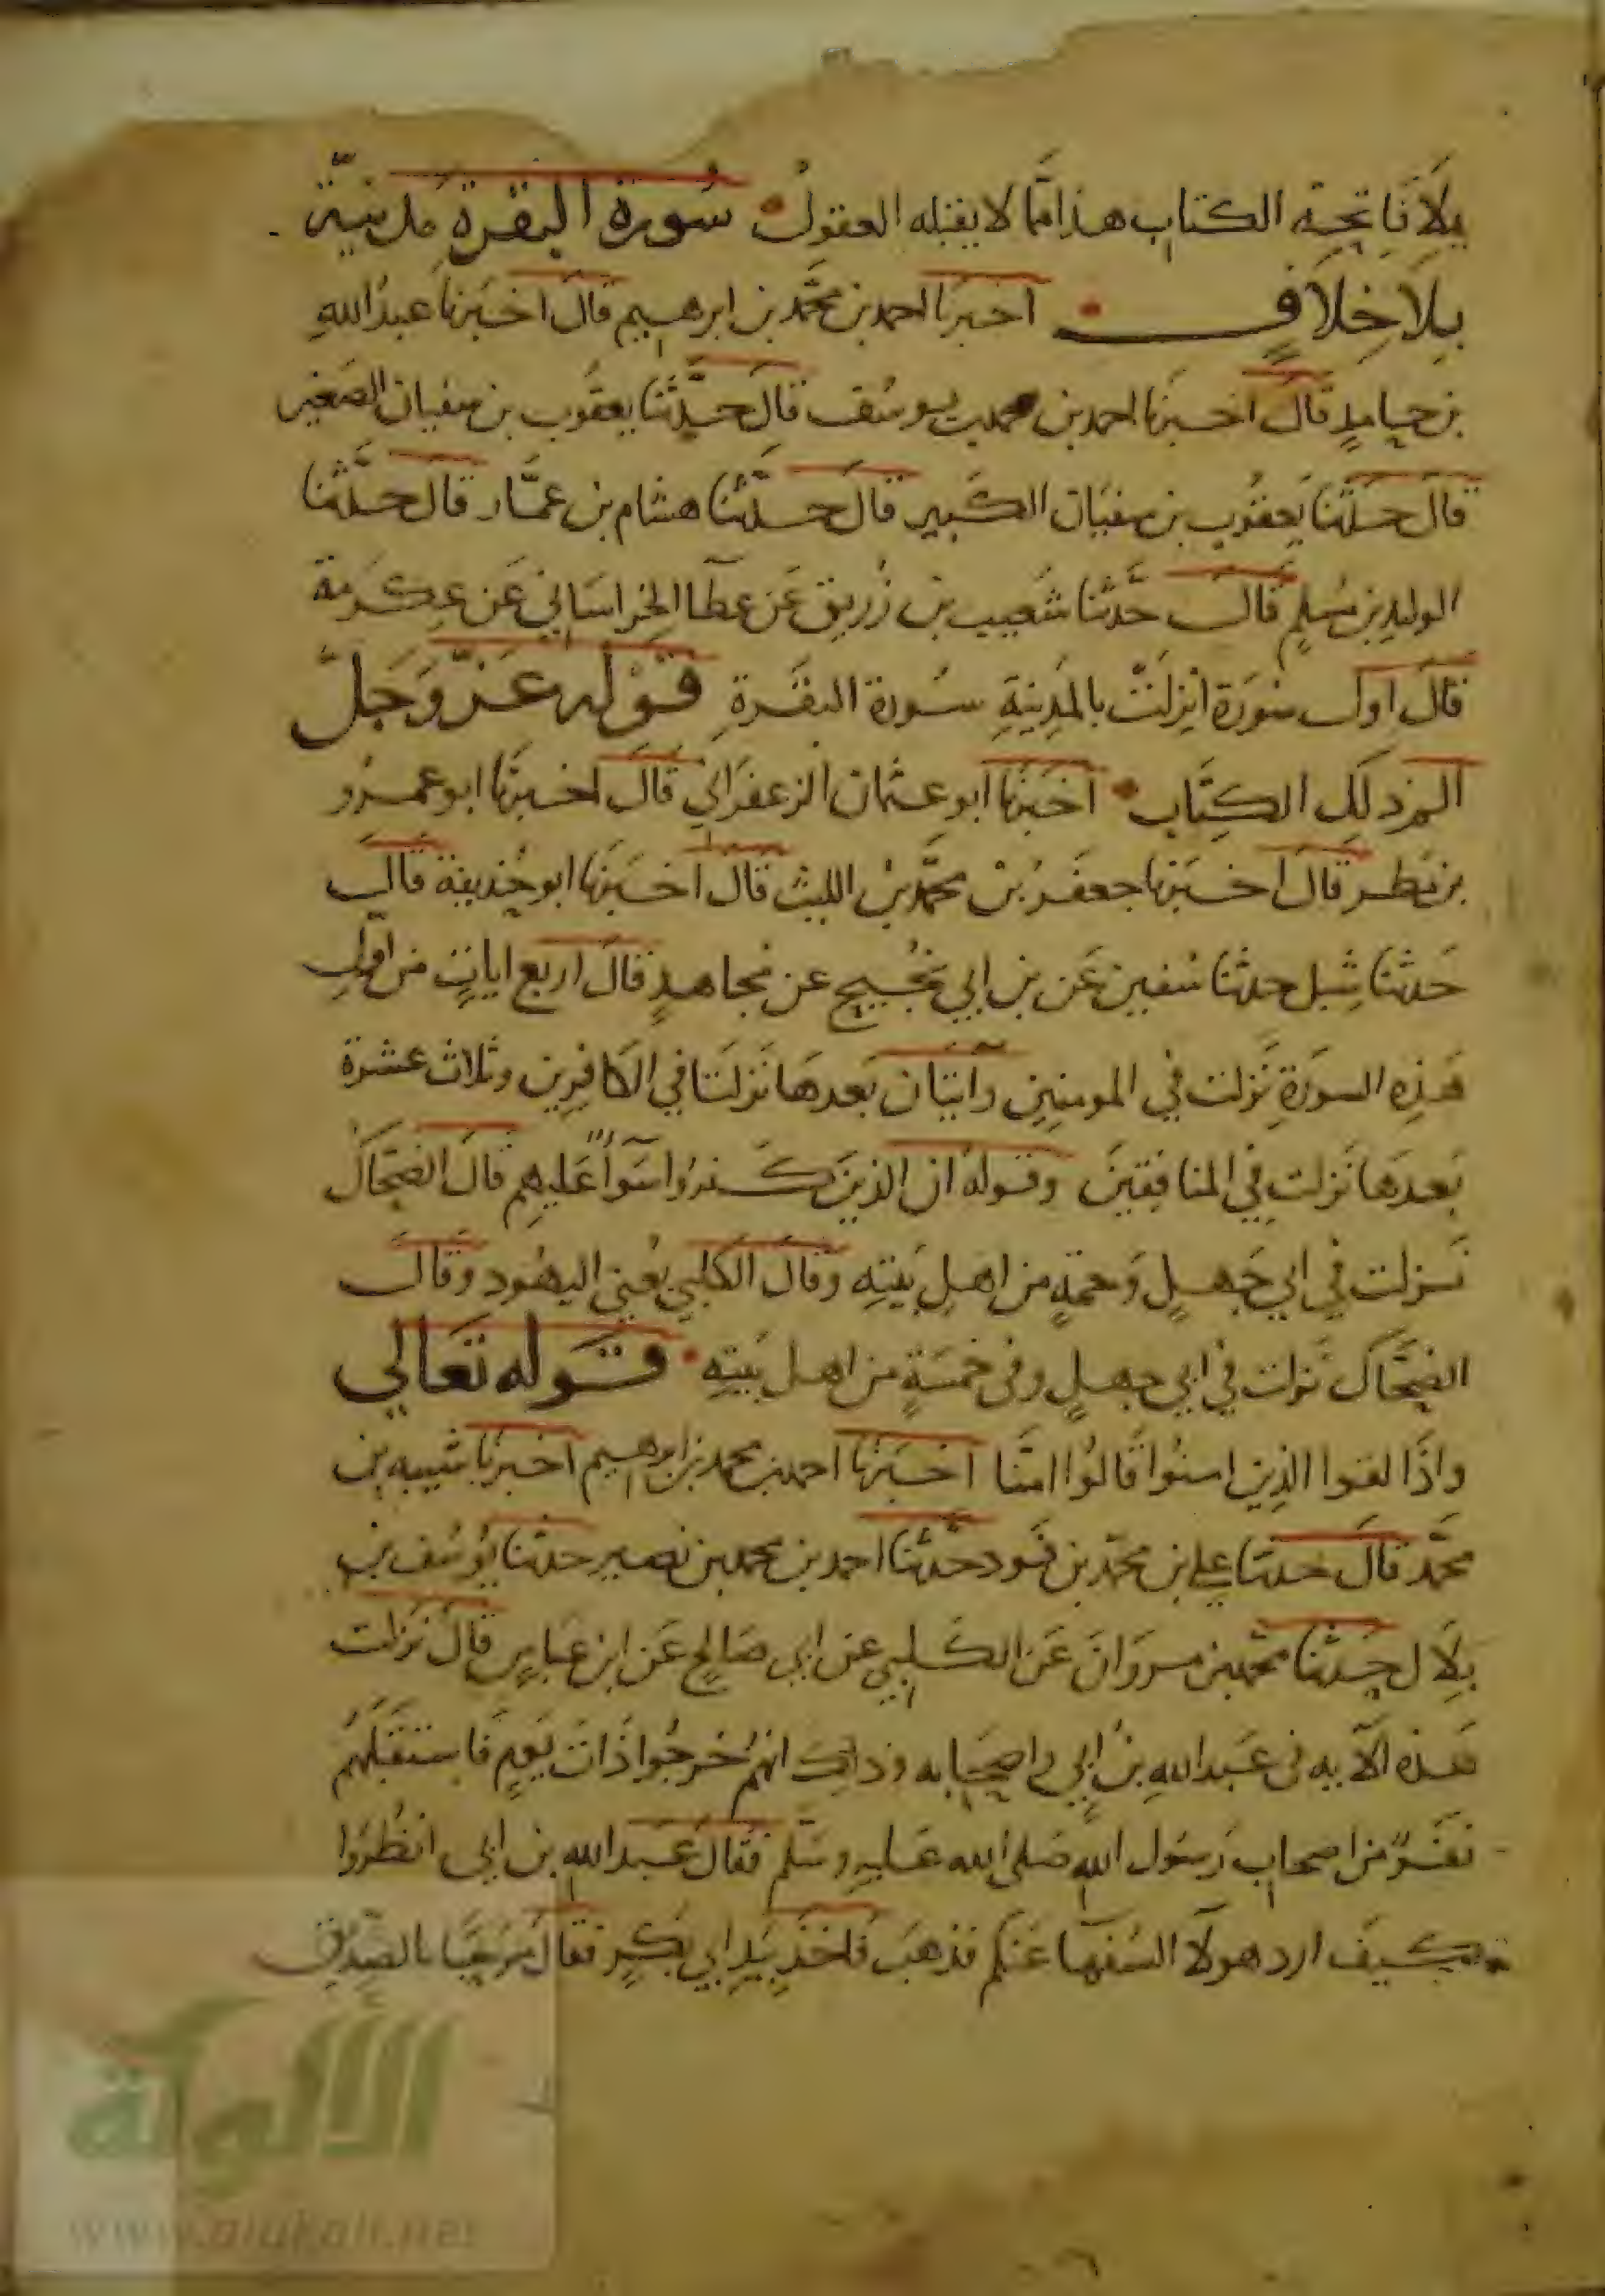 بلا فاتحة الكتاب هذا مما لا يقبله العقول سورة البقرة مدنية
بلا خلاف اخبرنا احمد بن محمد بن ابرهيم قال اخبرنا عبد الله
بن حامد قال اخبرنا احمد بن محمد بن يوسف قال حدثنا يعقوب بن سفيان الصغير
قال حدثنا يعقوب بن سفيان الكبير قال حدثنا هشام بن عمار قال حدثنا
الوليد بن مسلم قال حدثنا شعيب بن زريق عن عطا الخراساني عن عكرمة
قال اول سورة انزلت بالمدينة سورة البقرة قوله عز وجل
الم ذلك الكتاب اخبرنا ابو عثمان الزعفراني قال اخبرنا ابو عمرو
بن مطر قال اخبرنا جعفر بن محمد بن الليث قال اخبرنا ابو حذيفة قال
حدثنا شبل حدثنا سفين عن بن ابي نجيح عن مجاهد قال اربع ايات من اول
هذه السورة نزلت في المومنين وآيتان بعدها نزلتا في الكافرين وثلاث عشرة
بعدها نزلت في المنافقين وقوله ان الذين كفروا سوآ عليهم قال الضحاك
نزلت في ابي جهل وخمسة من اهل بيته وقال الكلبي يعني اليهود وقال
الضحاك نزلت في ابي جهل وفي خمسة من اهل بيته قوله تعالي
واذا لقوا الذين امنوا قالوا امنا اخبرنا احمد بن محمد بن ابرهيم اخبرنا شيبه بن
محمد قال حدثنا علي بن محمد بن حدثنا احمد بن محمد بن نصير حدثنا يوسف بن
بلال حدثنا محمد بن مروان عن الكلبي عن ابي صالح عن ابن عباس قال نزلت
هذه الآيه في عبد الله بن ابي واصحابه وذلك انهم خرجوا ذات يوم فاستقبلهم
نفر من اصحاب رسول الله صلى الله عليه وسلم فقال عبد الله بن ابي انظروا
كيف ارد هولآ السفهآ عنكم فذهب فاخذ بيد ابي بكر فقال مرحبا بالصديق
الألوكة
www.alukah.net